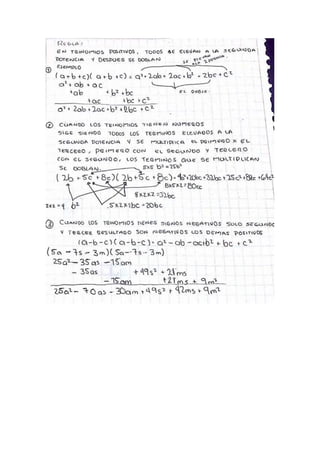 REGLA:
EN TRINOMIOS POSITIVOS, TODOS SE ELEVAN A LA SEGUNDA
POTENCIA Y DESPUES SE DOBLAN
SE ELEVAN
① EJEMPLO
(a+b+c)(a+b+c) = a²+2ab+2ac+b²+2bc+c²
a²+ab+ac
+ab +b²+bc EL DOBLE.
+ac +bc+c²
a²+2ab+2ac+b²+2bc+c²
② CUANDO LOS TRINOMIOS TIENEN NUMEROS
SIGE SIENDO TODOS LOS TERMINOS ELEVADOS A LA
SEGUNDA POTENCIA Y SE MULTIPLICA EL PRIMERO X EL
TERCERO, PRIMERO CON EL SEGUNDO Y TERCERO
CON EL SEGUNDO, LOS TERMINOS QUE SE MULTIPLICAN
SE DOBLAN. 5x5 b²=25b²
(2b+5c+8c)(2b+5c+8c)=4b²+20bc+32bc+25c²+80c+64c²
8x5x2=80bc
8x2x2=32bc
2x2=4 b² 5x2x2bc=20bc
③ CUANDO LOS TRINOMIOS TIENES SIGNOS NEGATIVOS SOLO SEGUNDO
Y TERCER RESULTADO SON NEGATIVOS LOS DEMAS POSITIVOS
(a-b-c)(a-b-c)=a²-ab-ac+b²+bc+c²
(5a-7s-3m)(5a-7s-3m)
25a²-35as-15am
-35as +49s²+21ms
-15am +21ms+9m²
25a²-70as-30am+49s²+42ms+9m²